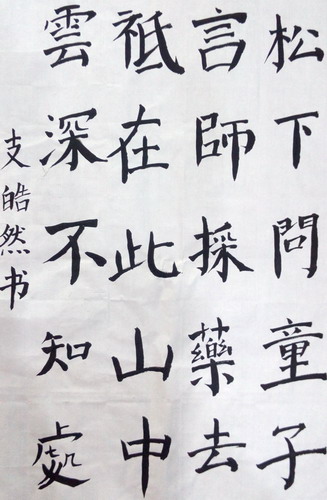 松下問童子
言師採藥去
祗在此山中
雲深不知處
支皓然书